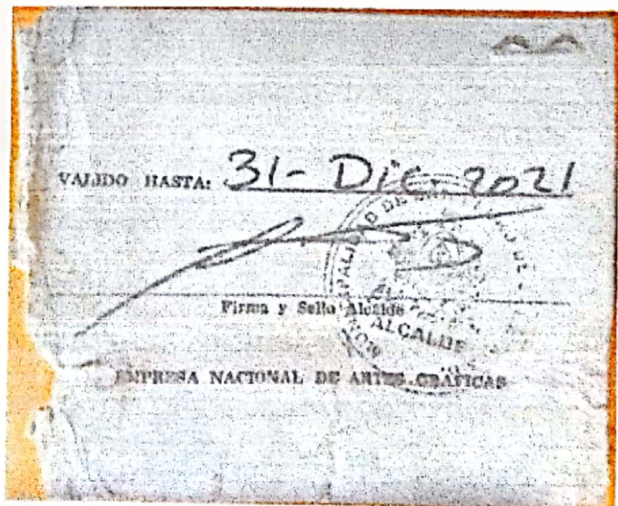 VALIDO HASTA: 31- Dic-2021
Firma y Sello Alcalde
ALCALDE
EMPRESA NACIONAL DE ARTES GRAFICAS